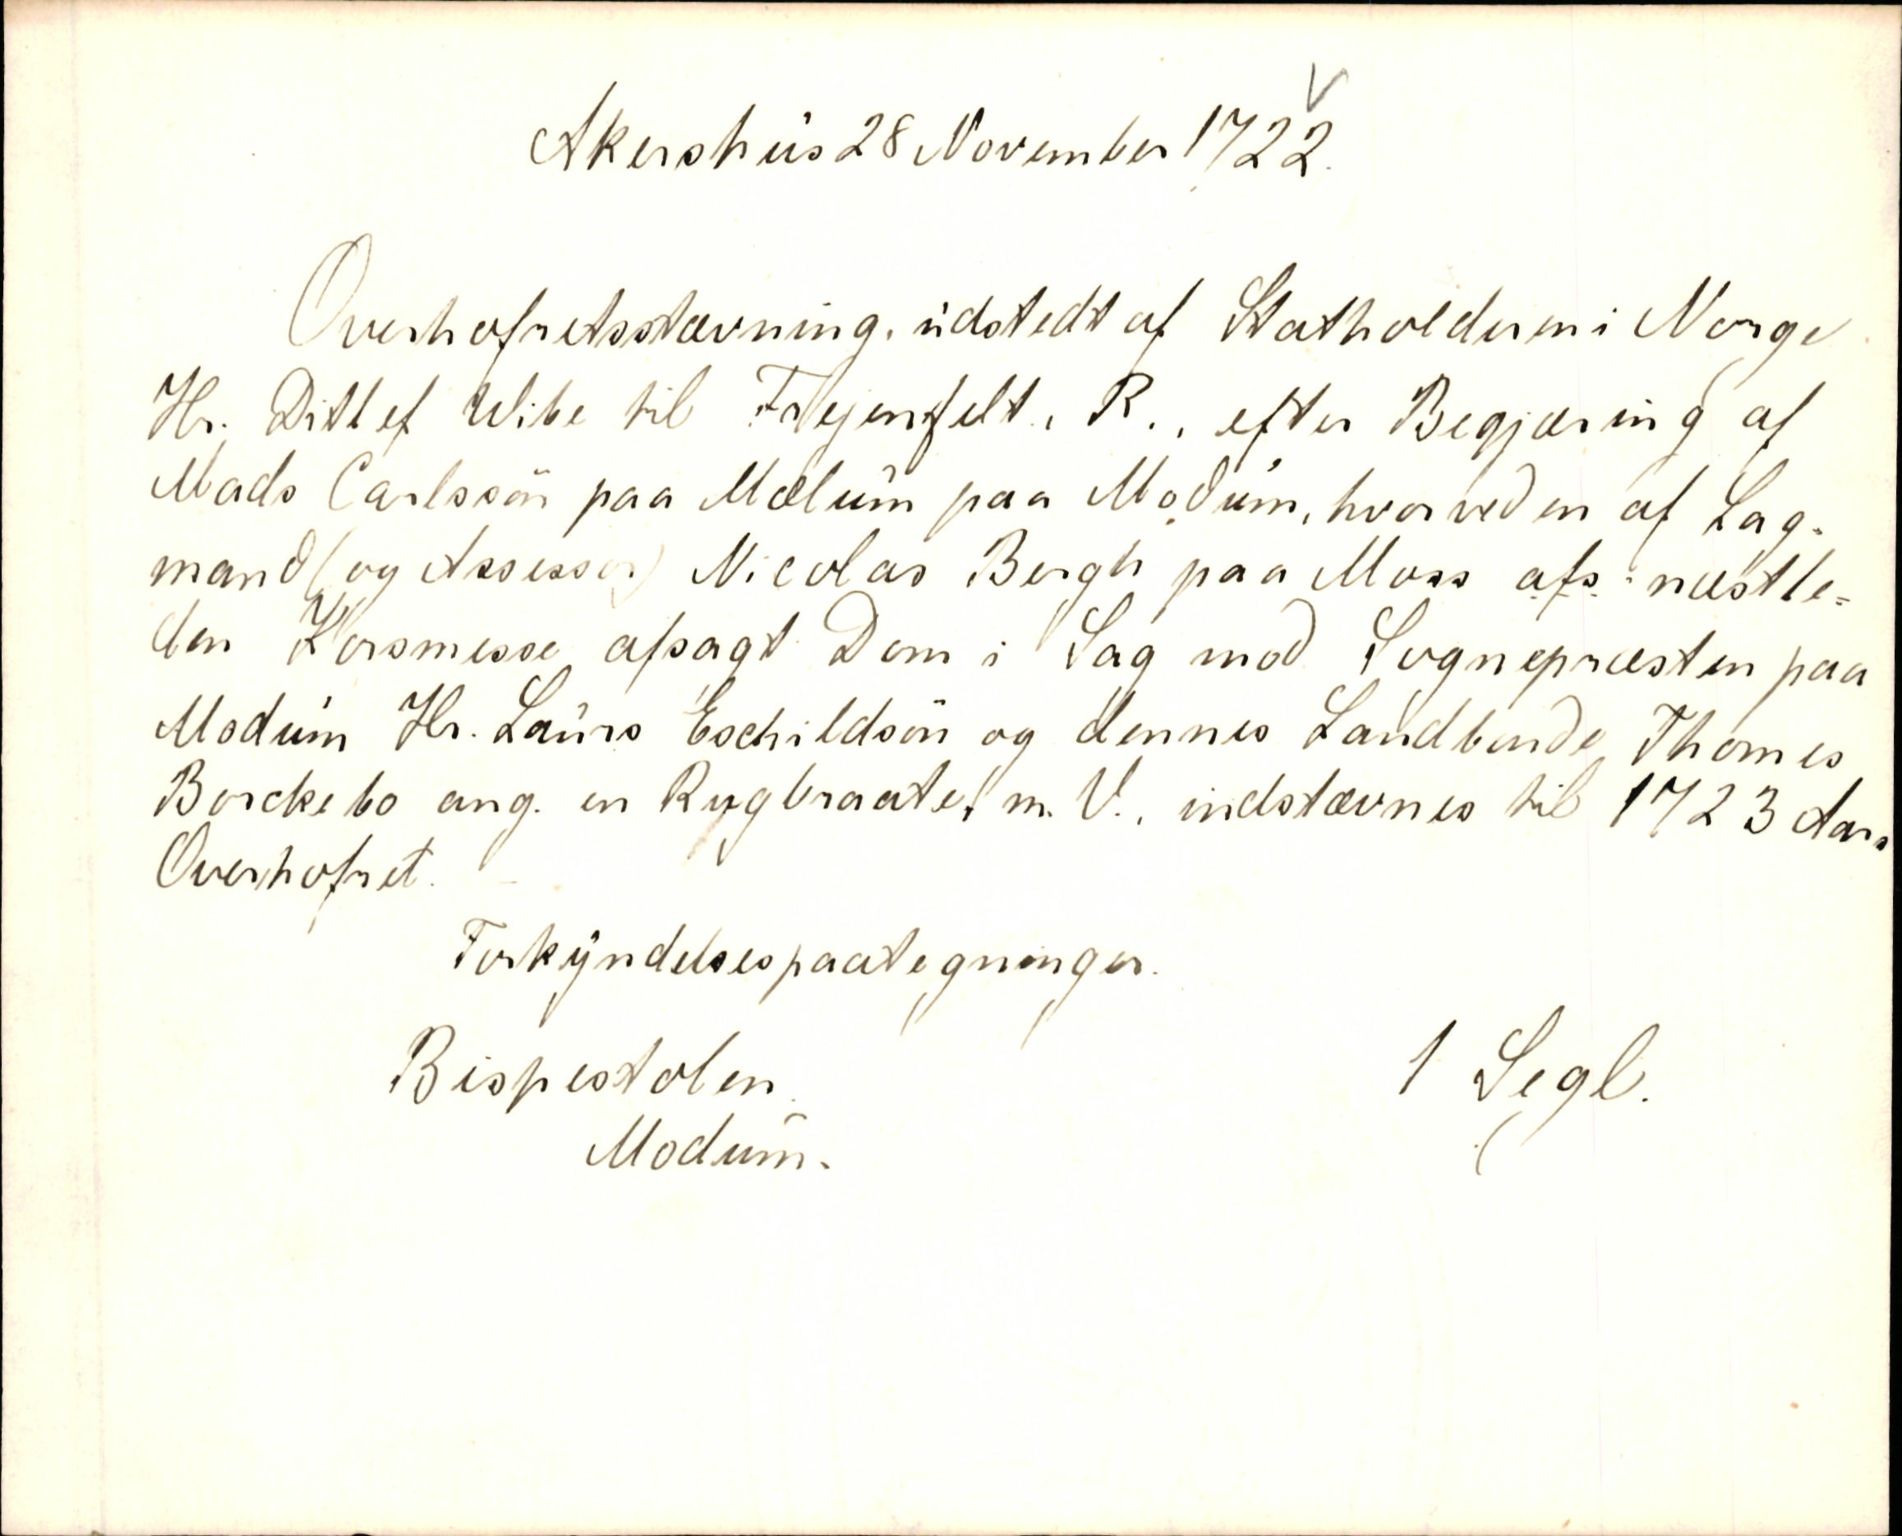 Akershus 28 November 1722.
Overhofretsstævning, udstedt af Statholderen i Norge
Hr. Ditlef Wibe til Frejenfelt, R., efter Begjæring af
Mads Carlssön paa Mælum paa Modum, hvorved en af Lag-
mand (og Assessor) Nicolas Bergh paa Moss afs: næstle-
den Korsmesse afsagt Dom i Sag mod Sognepræsten paa
Modum Hr. Laurs Eschildsön og dennes Landbonde Thomes
Borckebo ang. en Rugbraate, m. V., indstævnes til 1723 Aars
Overhofret.
Forkyndelsespaategninger.
Bispestolen
1 Segl.
Modum.